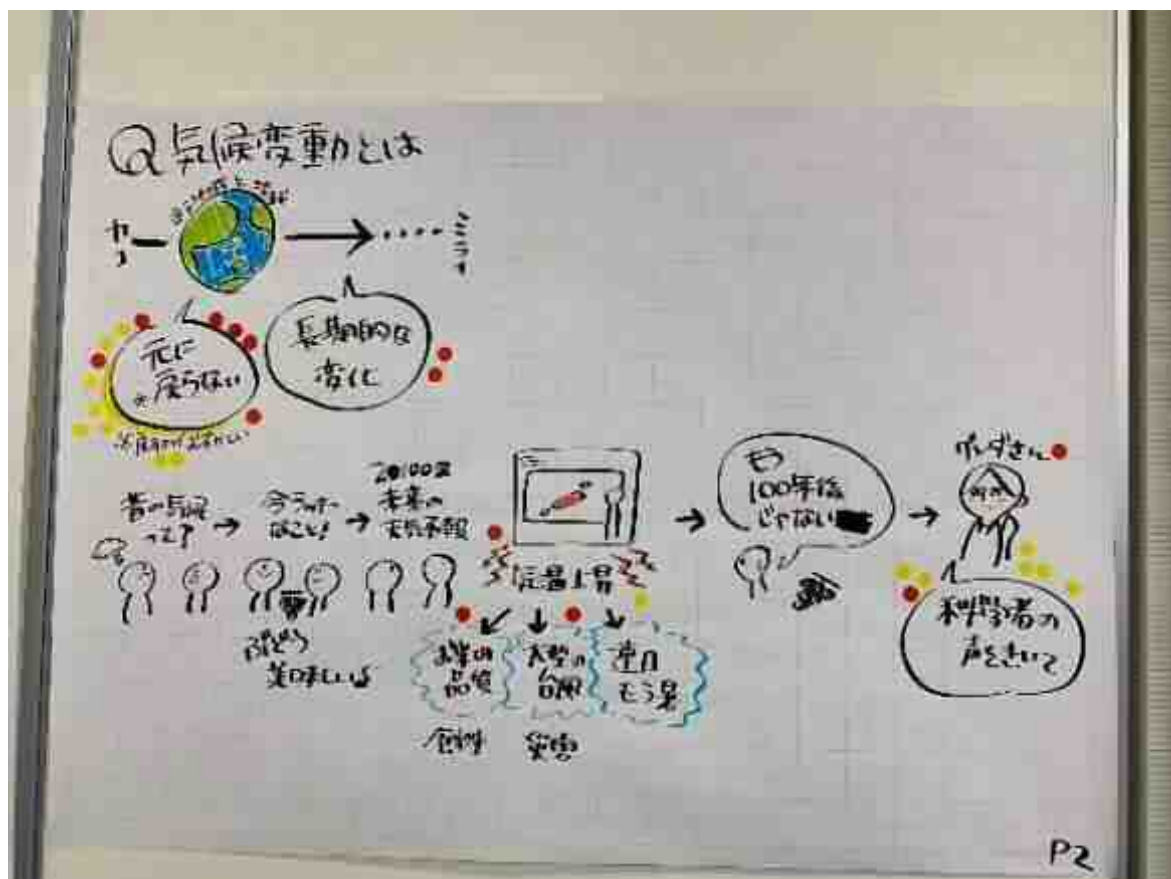 Q 気候変動とは
ミライ
元に
戻らない
長期的な
変化
昔の気候
って?
今こんな
なこと!
2100年
未来の
天気予報
ぶどう
美味しいよ
気温上昇
お米の
品質
大型の
台風
連日
もう暑
食料
災害
100年後
じゃない
グレタさん
科学者の
声をきいて
P2